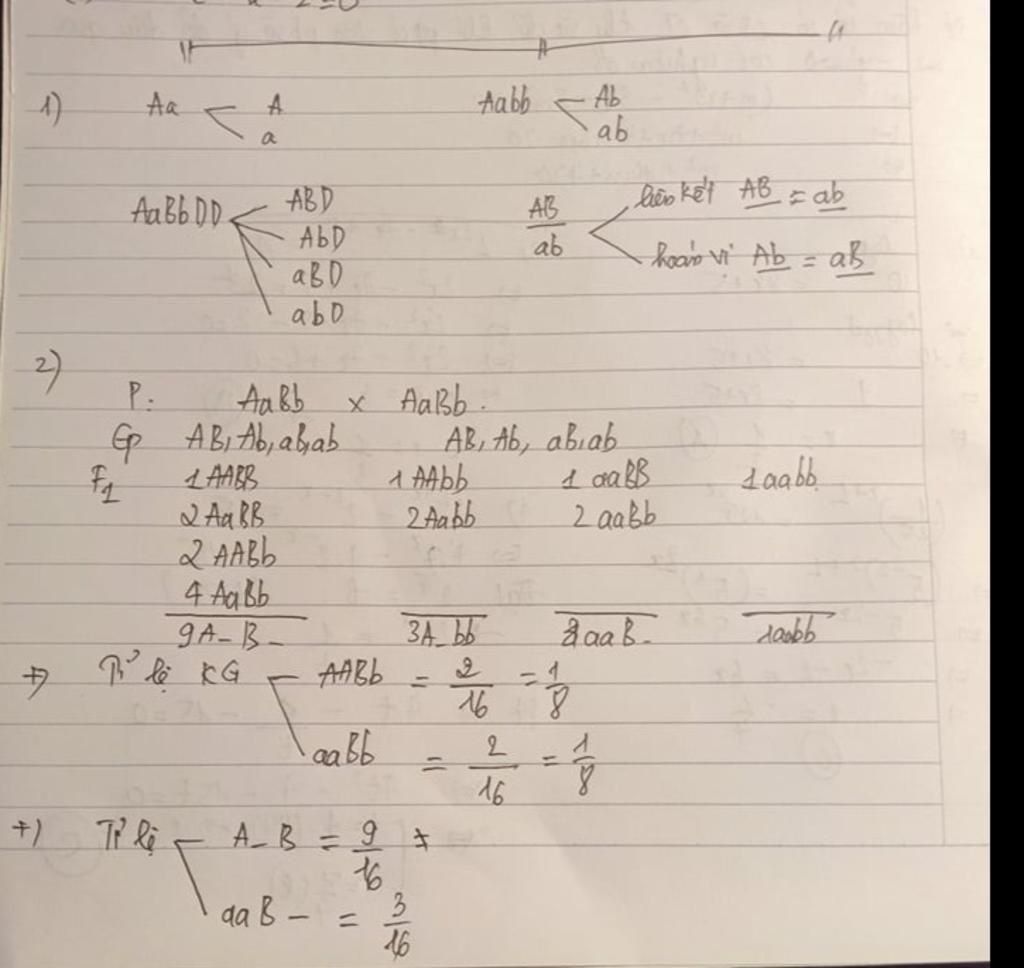 1) Aa A Aabb Ab
a ab
AaBbDD ABD AB/ab liên kết AB = ab
AbD hoán vị Ab = aB
aBD
abD
2)
P: AaBb x AaBb.
Gp AB, Ab, aB, ab AB, Ab, aB, ab
F1 1AABB 1AAbb 1aaBB 1aabb
2AaBB 2Aabb 2aaBb
2AABb
4AaBb
9A-B- 3A_bb 3aaB- 1aabb
+) Tỉ lệ KG AABb = 2/16 = 1/8
aaBb = 2/16 = 1/8
+) Tỉ lệ A_B = 9/16
aaB- = 3/16